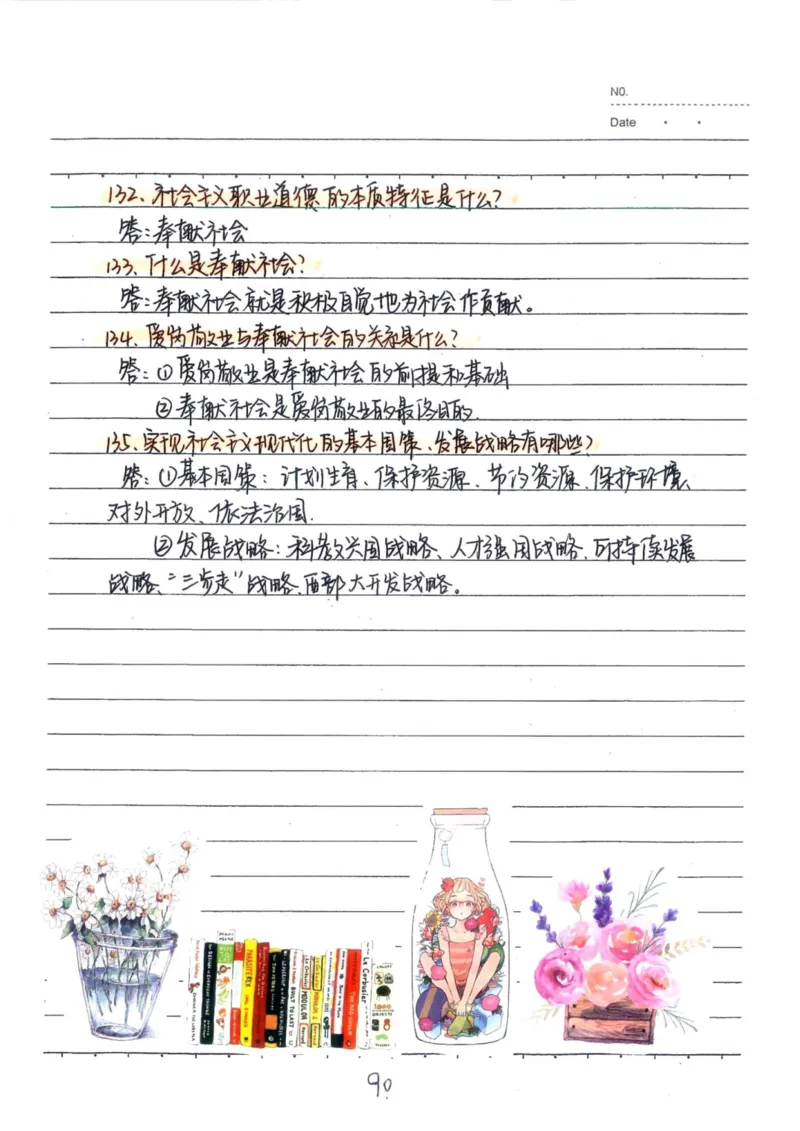 NO.
Date
132、社会主义职业道德的本质特征是什么?
答:奉献社会
133、什么是奉献社会?
答:奉献社会就是积极自觉地为社会作贡献。
134、爱岗敬业与奉献社会的关系是什么?
答:①爱岗敬业是奉献社会的前提和基础
②奉献社会是爱岗敬业的最终目的.
135、实现社会主义现代化的基本国策、发展战略有哪些?
答:①基本国策:计划生育、保护资源、节约资源、保护环境、
对外开放、依法治国.
②发展战略:科教兴国战略、人才强国战略、可持续发展
战略、“三步走”战略、西部大开发战略。
PARASITE REX
BUILT TO LAST
MODULOR
MODULOR 2
Le Corbusier
90